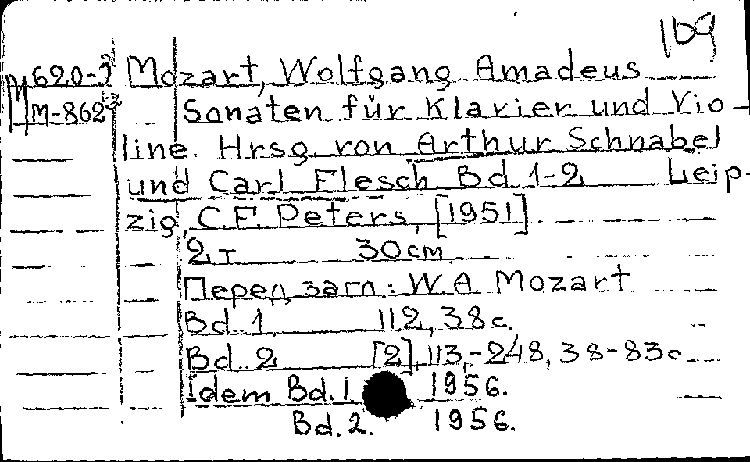 109
М620-3 Mozart, Wolfgang Amadeus
М-862 Sonaten für Klavier und Vio-
line. Hrsg. von Arthur Schnabel
und Carl Flesch Bd. 1-2 Leip-
zig, C.F. Peters, [1951].
2 т 30 cm
Перед загл.: W.A. Mozart
Bd. 1 112, 38 с.
Bd. 2 [2], 113,-248, 38-83 с.
Idem Bd. 1 1956.
Bd. 2. 1956.